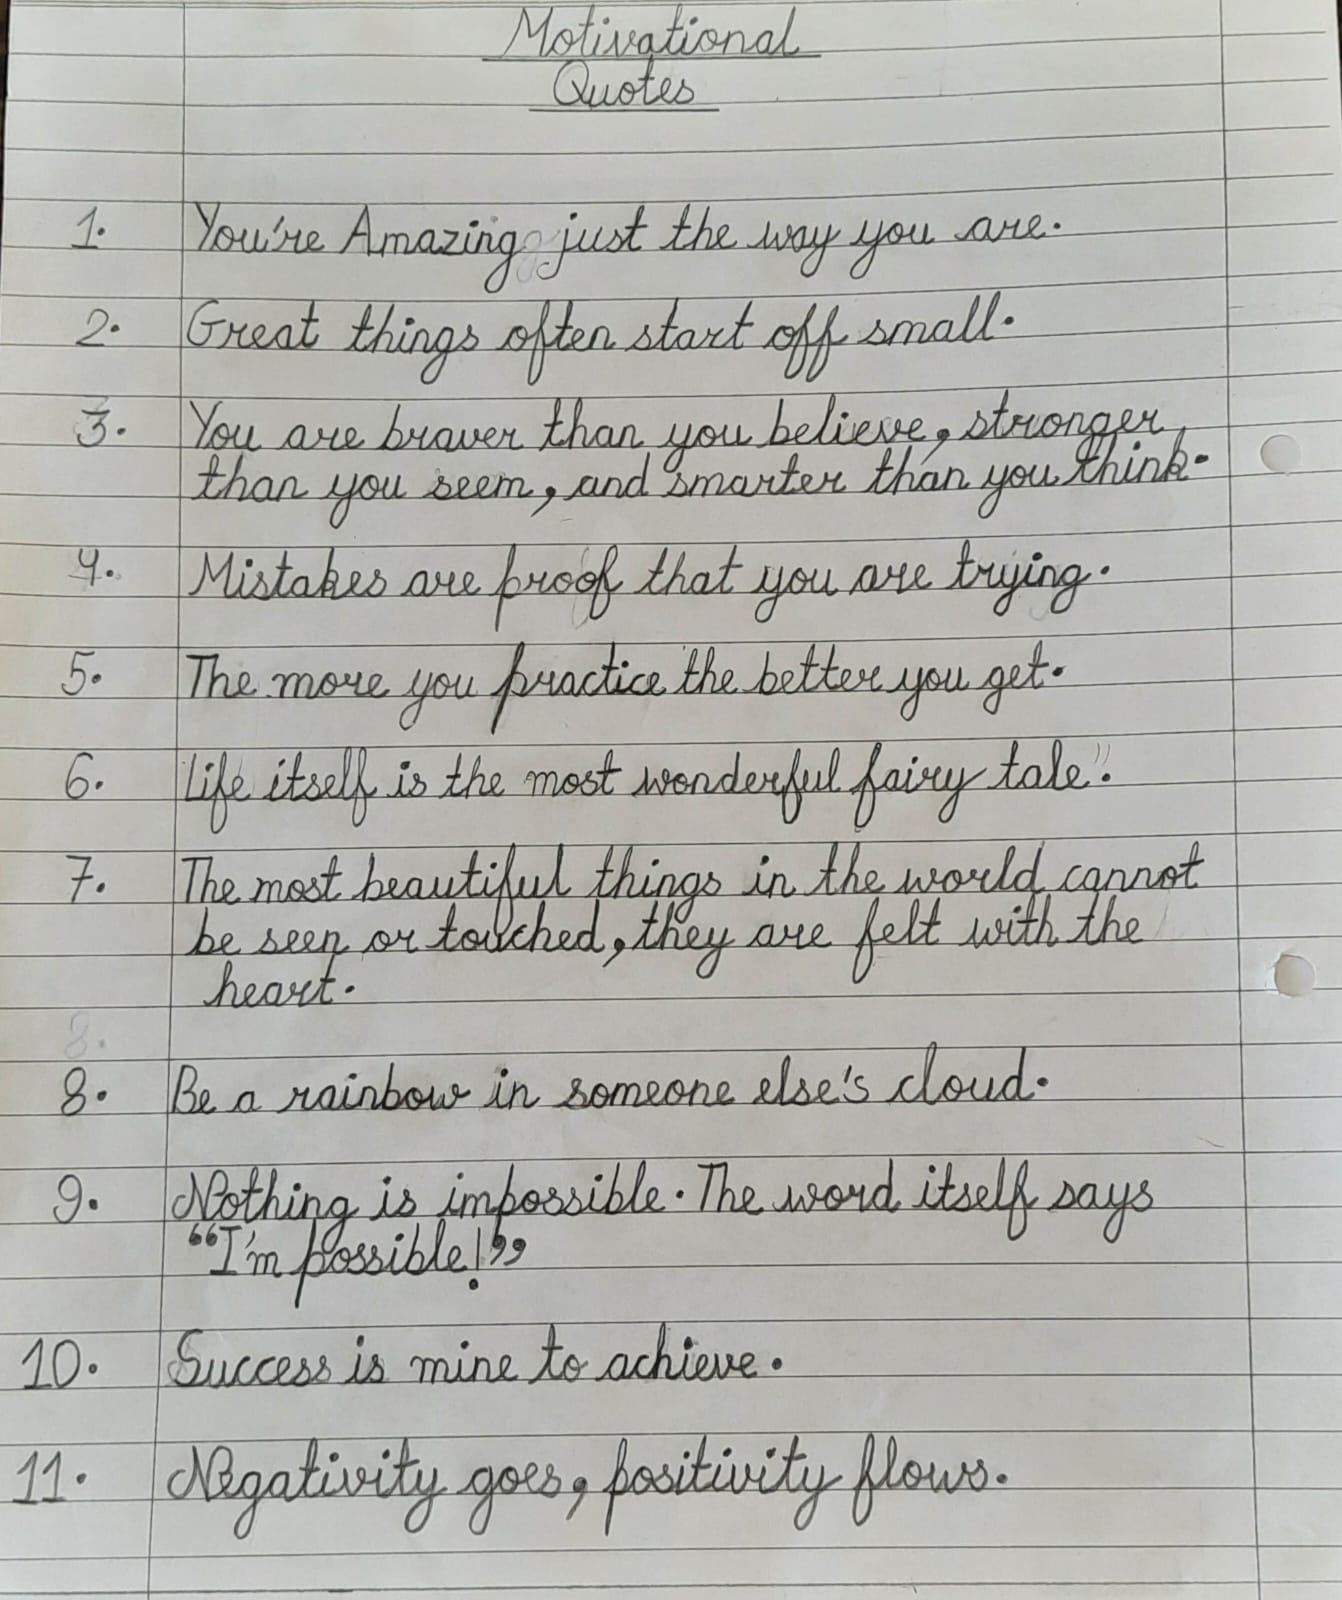 Motivational
Quotes
1. You're Amazing just the way you are.
2. Great things often start off small.
3. You are braver than you believe, stronger
than you seem, and smarter than you think.
4. Mistakes are proof that you are trying.
5. The more you practice the better you get.
6. Life itself is the most wonderful fairy tale".
7. The most beautiful things in the world cannot
be seen or touched, they are felt with the
heart.
8.
8. Be a rainbow in someone else's cloud.
9. Nothing is impossible. The word itself says
"I'm possible!"
10. Success is mine to achieve.
11. Negativity goes, positivity flows.